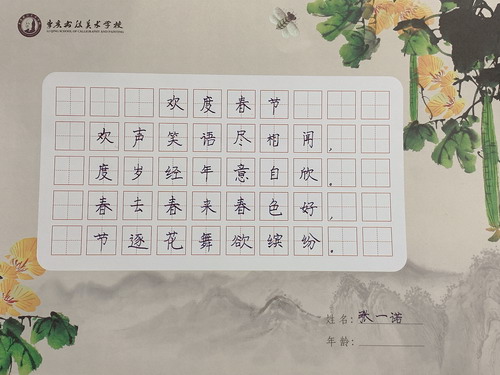 書法美术学校
欢度春节
欢声笑语尽相闻,
度岁经年意自欣.
春去春来春色好,
节逐花舞欲缤纷.
姓名:张一诺
年龄: